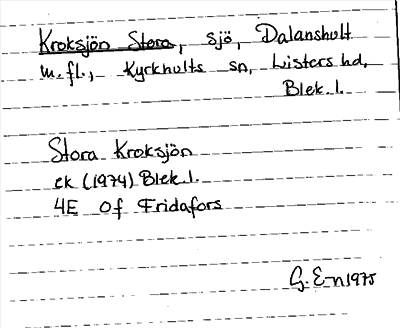 Kroksjön Stora, sjö, Dalanshult
m.fl., Kyrkhults sn, Listers hd,
Blek. l.
Stora Kroksjön
ek (1974) Blek. l.
4E 0f Fridafors
G. E-n 1975